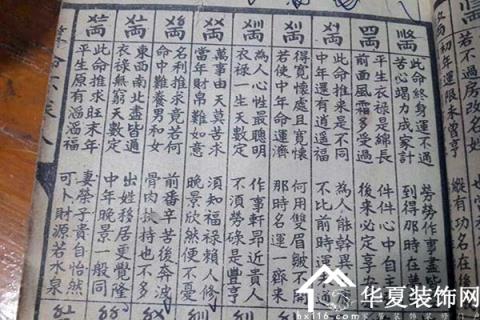 若不過房改名姓
初年運限未曾亨 縱有功名在
此命終身運不通 勞勞作事盡
苦心竭力成家計 到得那時在
平生衣祿是綿長 件件心中自
前面風霜多受過 後來必定享
此命推來是不同 為人能幹異
中年還有逍遙福 不比前時運
得寬懷處且寬懷 何用雙眉皺不開
若使中年命運濟 那時名運一齊來
為人心性最聰明 作事軒昂近貴人
衣祿一生天數定 不須勞碌是豐亨
萬事由天莫苦求 須知福祿賴人修
當年財帛難如意 晚景欣然便不憂
名利推求竟若何 前番辛苦後奔波
命中難養男和女 骨肉扶持也不多
東西南北盡皆通 出姓移居更覺隆
衣祿無窮天數定 中年晚景一般同
此命推求旺末年 妻榮子貴自怡然
平生原有滔滔福 可卜財源若水泉
华夏装饰网
hx116.com